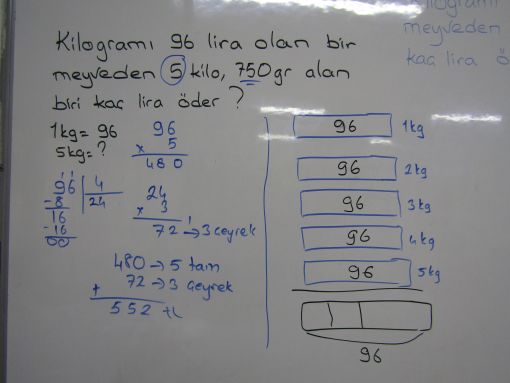 Kilogramı 96 lira olan bir
meyveden 5 kilo, 750gr alan
biri kaç lira öder ?
1kg = 96
5kg = ?
96
x 5
480
96 4
-8 24
16
-16
00
24
x 3
72 → 3 çeyrek
480 → 5 tam
+ 72 → 3 çeyrek
552 TL
96 1kg
96 2kg
96 3kg
96 4kg
96 5kg
96
Kilogramı
meyveden
kaç lira ö